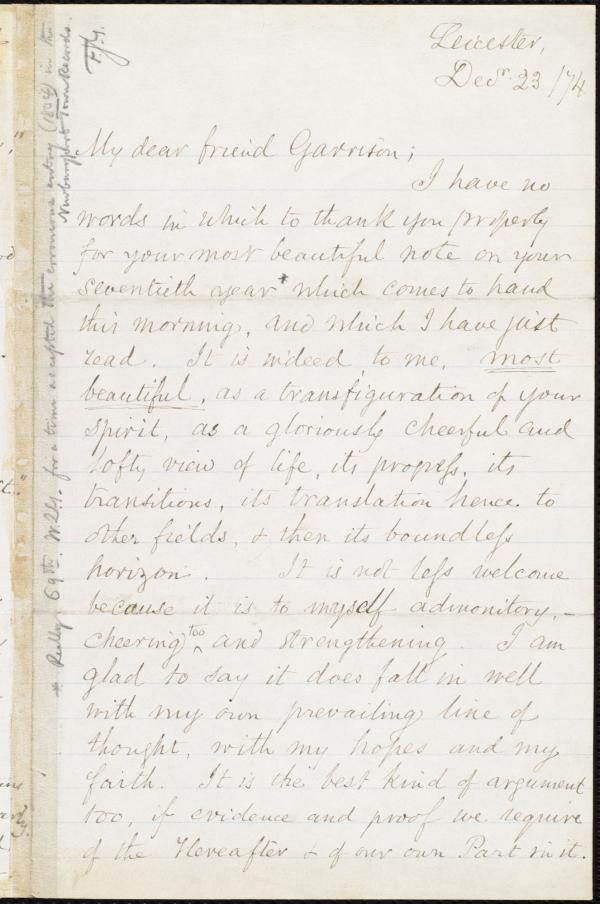 Leicester,
Decr. 23 /74
My dear friend Garrison;
I have no
words in which to thank you properly
for your most beautiful note on your
seventieth year * which comes to hand
this morning, and which I have just
read. It is indeed, to me, most
beautiful, as a transfiguration of your
spirit, as a gloriously cheerful and
lofty view of life, its progress, its
transitions, its translation hence to
other fields, & then its boundless
horizon. It is not less welcome
because it is to myself admonitory, -
cheering too and strengthening. I am
glad to say it does fall in well
with my own prevailing line of
thought, with my hopes and my
faith. It is the best kind of argument
too, if evidence and proof we require
of the Hereafter & of our own Part in it.
* Really, 69th. W.L.G. for a time accepted the erroneous entry (1804) in the
Newburyport Town Records.
F.J.G.